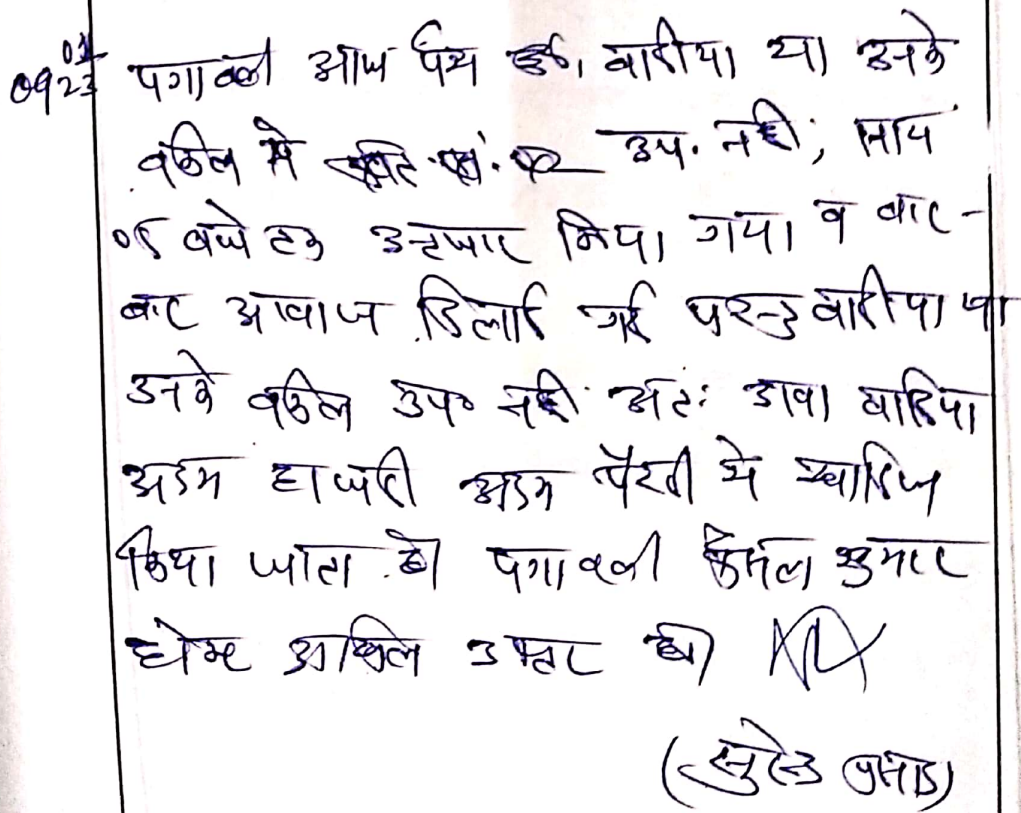 पत्रावली आज पेश हुई। वादीया या उनके
वकील में उप. नहीं, सायं
05 बजे तक इन्तजार किया गया व बार-
बार आवाज दिलाई गई परन्तु वादीया या
उनके वकील उप० नहीं अतः दावा वादिया
अदम हाजरी अदम पैरवी में खारिज
किया जाता है। पत्रावली फैसल शुमार
होकर दाखिल दफ्तर हो।
(सुरेन्द्र प्रसाद)